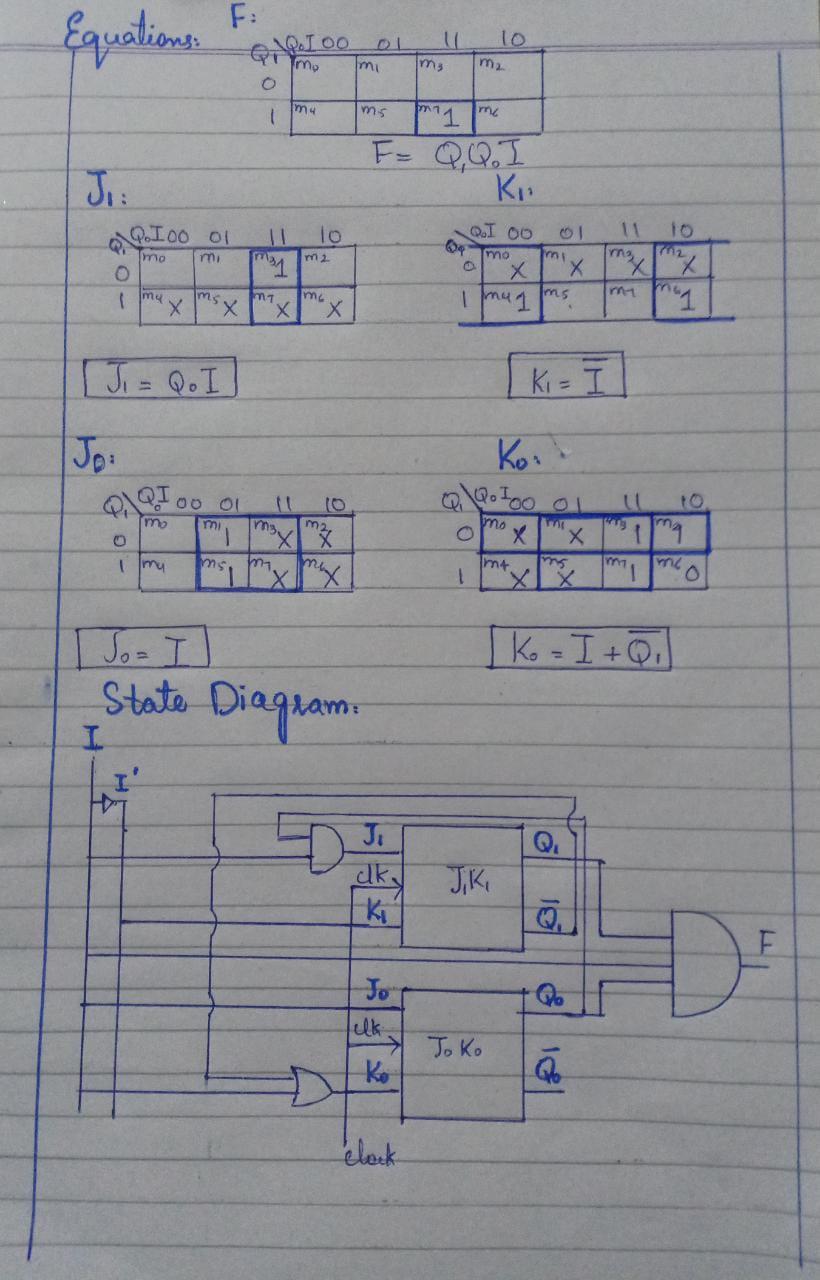 Equations: F:
Q₁\Q₀I 00 01 11 10
0 m₀ m₁ m₃ m₂
1 m₄ m₅ m₇ 1 m₆
F = Q₁Q₀I
J₁: K₁:
Q₁\Q₀I 00 01 11 10
0 m₀ m₁ m₃ 1 m₂
1 m₄ X m₅ X m₇ X m₆ X
Q₀I 00 01 11 10
0 m₀ X m₁ X m₃ X m₂ X
1 m₄ 1 m₅ m₇ m₆ 1
J₁ = Q₀I K₁ = I̅
J₀: K₀:
Q₁\Q₀I 00 01 11 10
0 m₀ m₁ 1 m₃ X m₂ X
1 m₄ m₅ 1 m₇ X m₆ X
Q₁\Q₀I 00 01 11 10
0 m₀ X m₁ X m₃ 1 1
1 m₄ X m₅ X m₇ 1 m₆ 0
J₀ = I K₀ = I + Q̅₁
State Diagram:
I
I'
J₁ Q₁
clk J₁K₁
K₁ Q̅₁
F
J₀ Q₀
clk J₀K₀
K₀ Q̅₀
clock